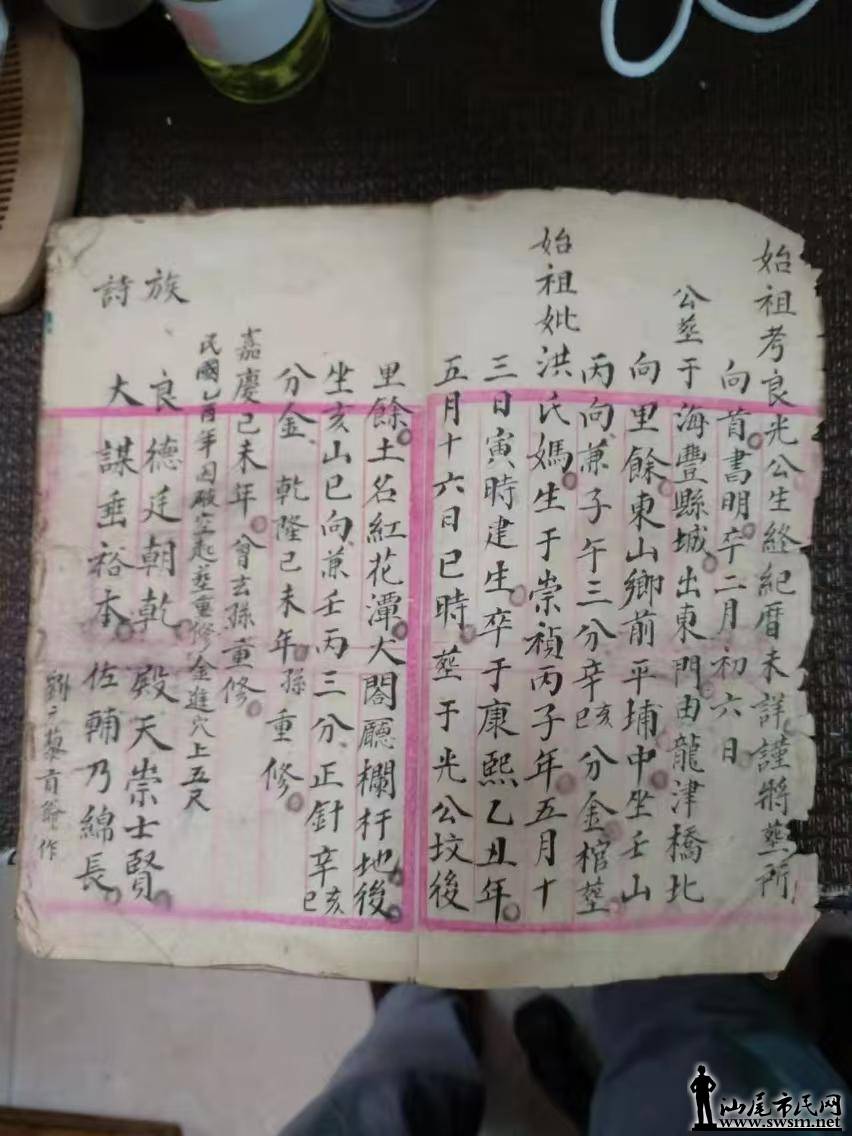 始祖考良光公生終紀曆未詳謹將塟所
向首書明卒二月初六日
公塟于海豐縣城出東門由龍津橋北
向里餘東山鄉前平埔中坐壬山
丙向兼子午三分辛亥辛巳分金棺塟
始祖妣洪氏媽生于崇禎丙子年五月十
三日寅時建生卒于康熙乙丑年
五月十六日巳時塟于光公坟後
里餘土名紅花潭犬閣廳欄杆地後
坐亥山巳向兼壬丙三分正針辛亥辛巳
分金乾隆己未年孫重修
嘉慶己未年曾玄孫重修
民國乙酉年因破空起塟重修金進穴上五尺
族詩
良德廷朝乾殿天崇士賢
大謀垂裕本佐輔乃綿長
劉 藜 作
汕尾市民网
www.swsm.net